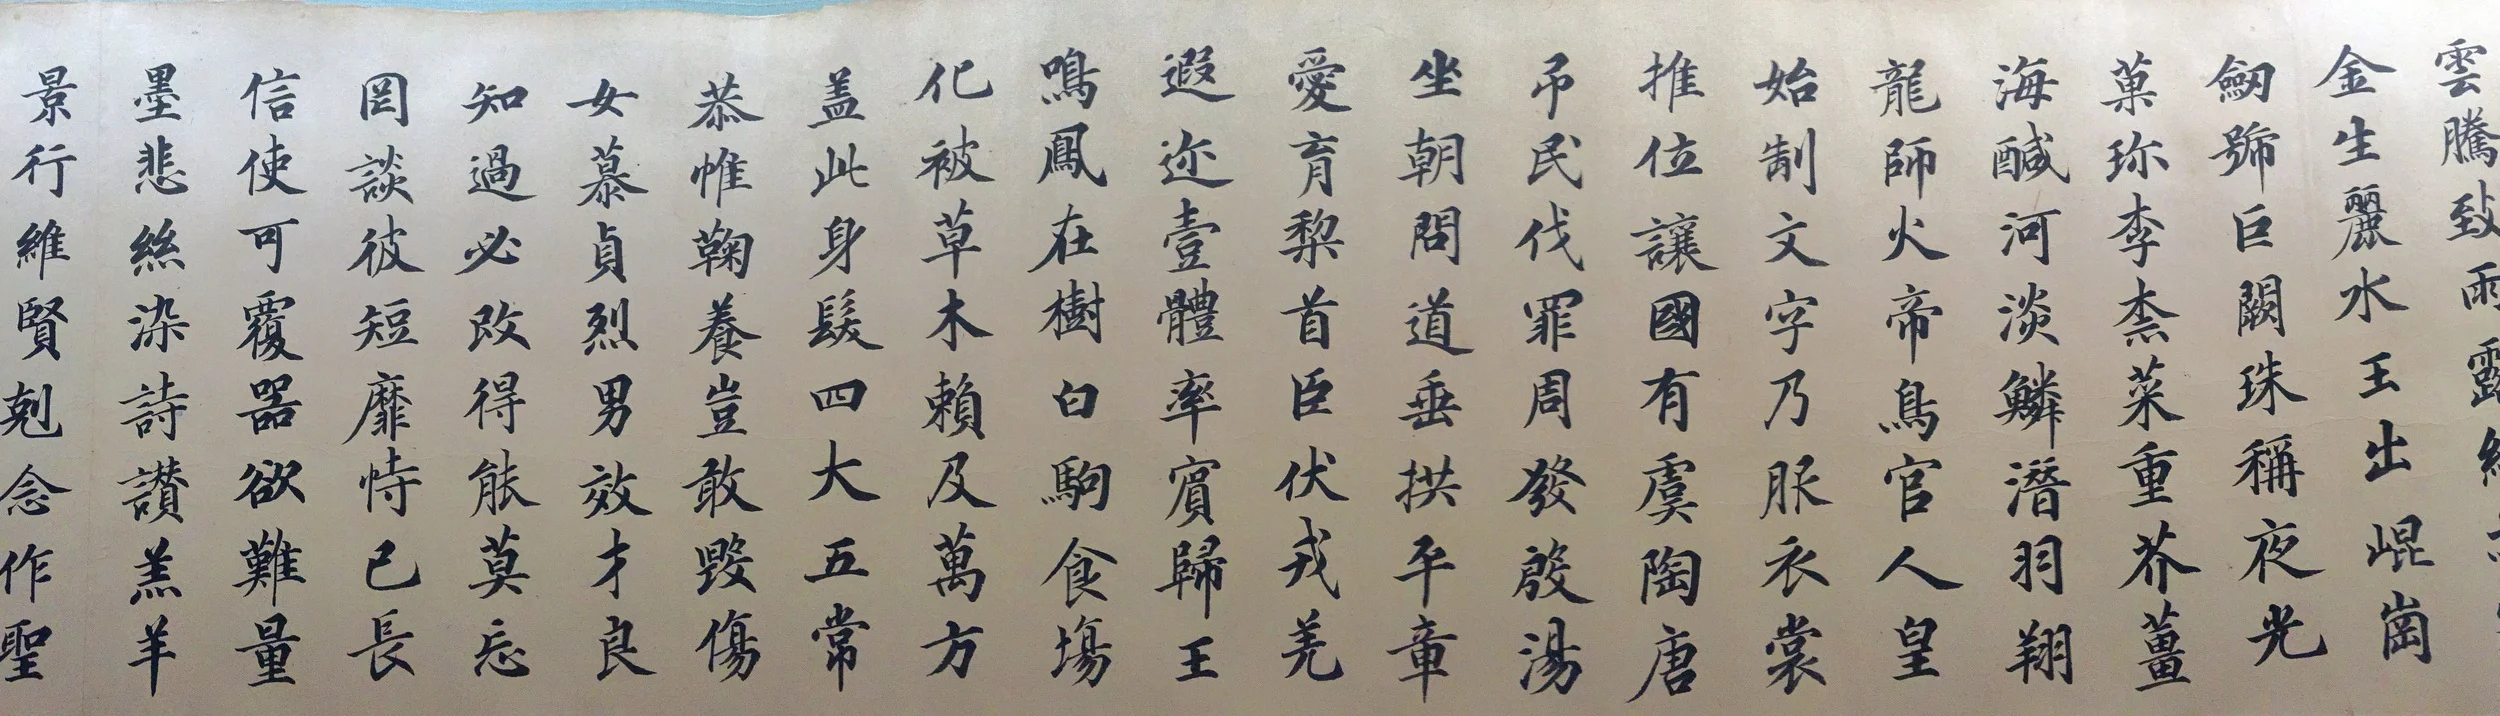 雲騰致雨露
金生麗水玉出崐崗
劒號巨闕珠稱夜光
菓珎李柰菜重芥薑
海醎河淡鱗潛羽翔
龍師火帝鳥官人皇
始制文字乃服衣裳
推位讓國有虞陶唐
吊民伐罪周發殷湯
坐朝問道垂拱平章
愛育黎首臣伏戎羌
遐迩壹體率賓歸王
鳴鳳在樹白駒食場
化被草木賴及萬方
盖此身髮四大五常
恭惟鞠養豈敢毀傷
女慕貞烈男效才良
知過必改得能莫忘
罔談彼短靡恃己長
信使可覆器欲難量
墨悲絲染詩讃羔羊
景行維賢剋念作聖